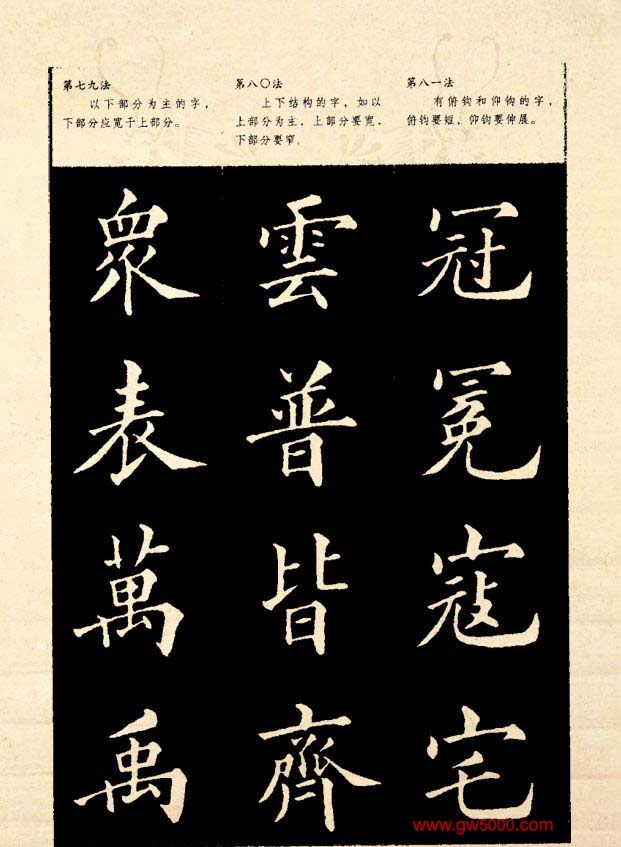 第七九法
以下部分为主的字，
下部分应宽于上部分。
第八〇法
上下结构的字，如以
上部分为主，上部分要宽、
下部分要窄．
第八一法
有俯钩和仰钩的字，
俯钩要短，仰钩要伸展。
衆表萬禹
雲普皆齊
冠冕寇宅
www.gw5000.com